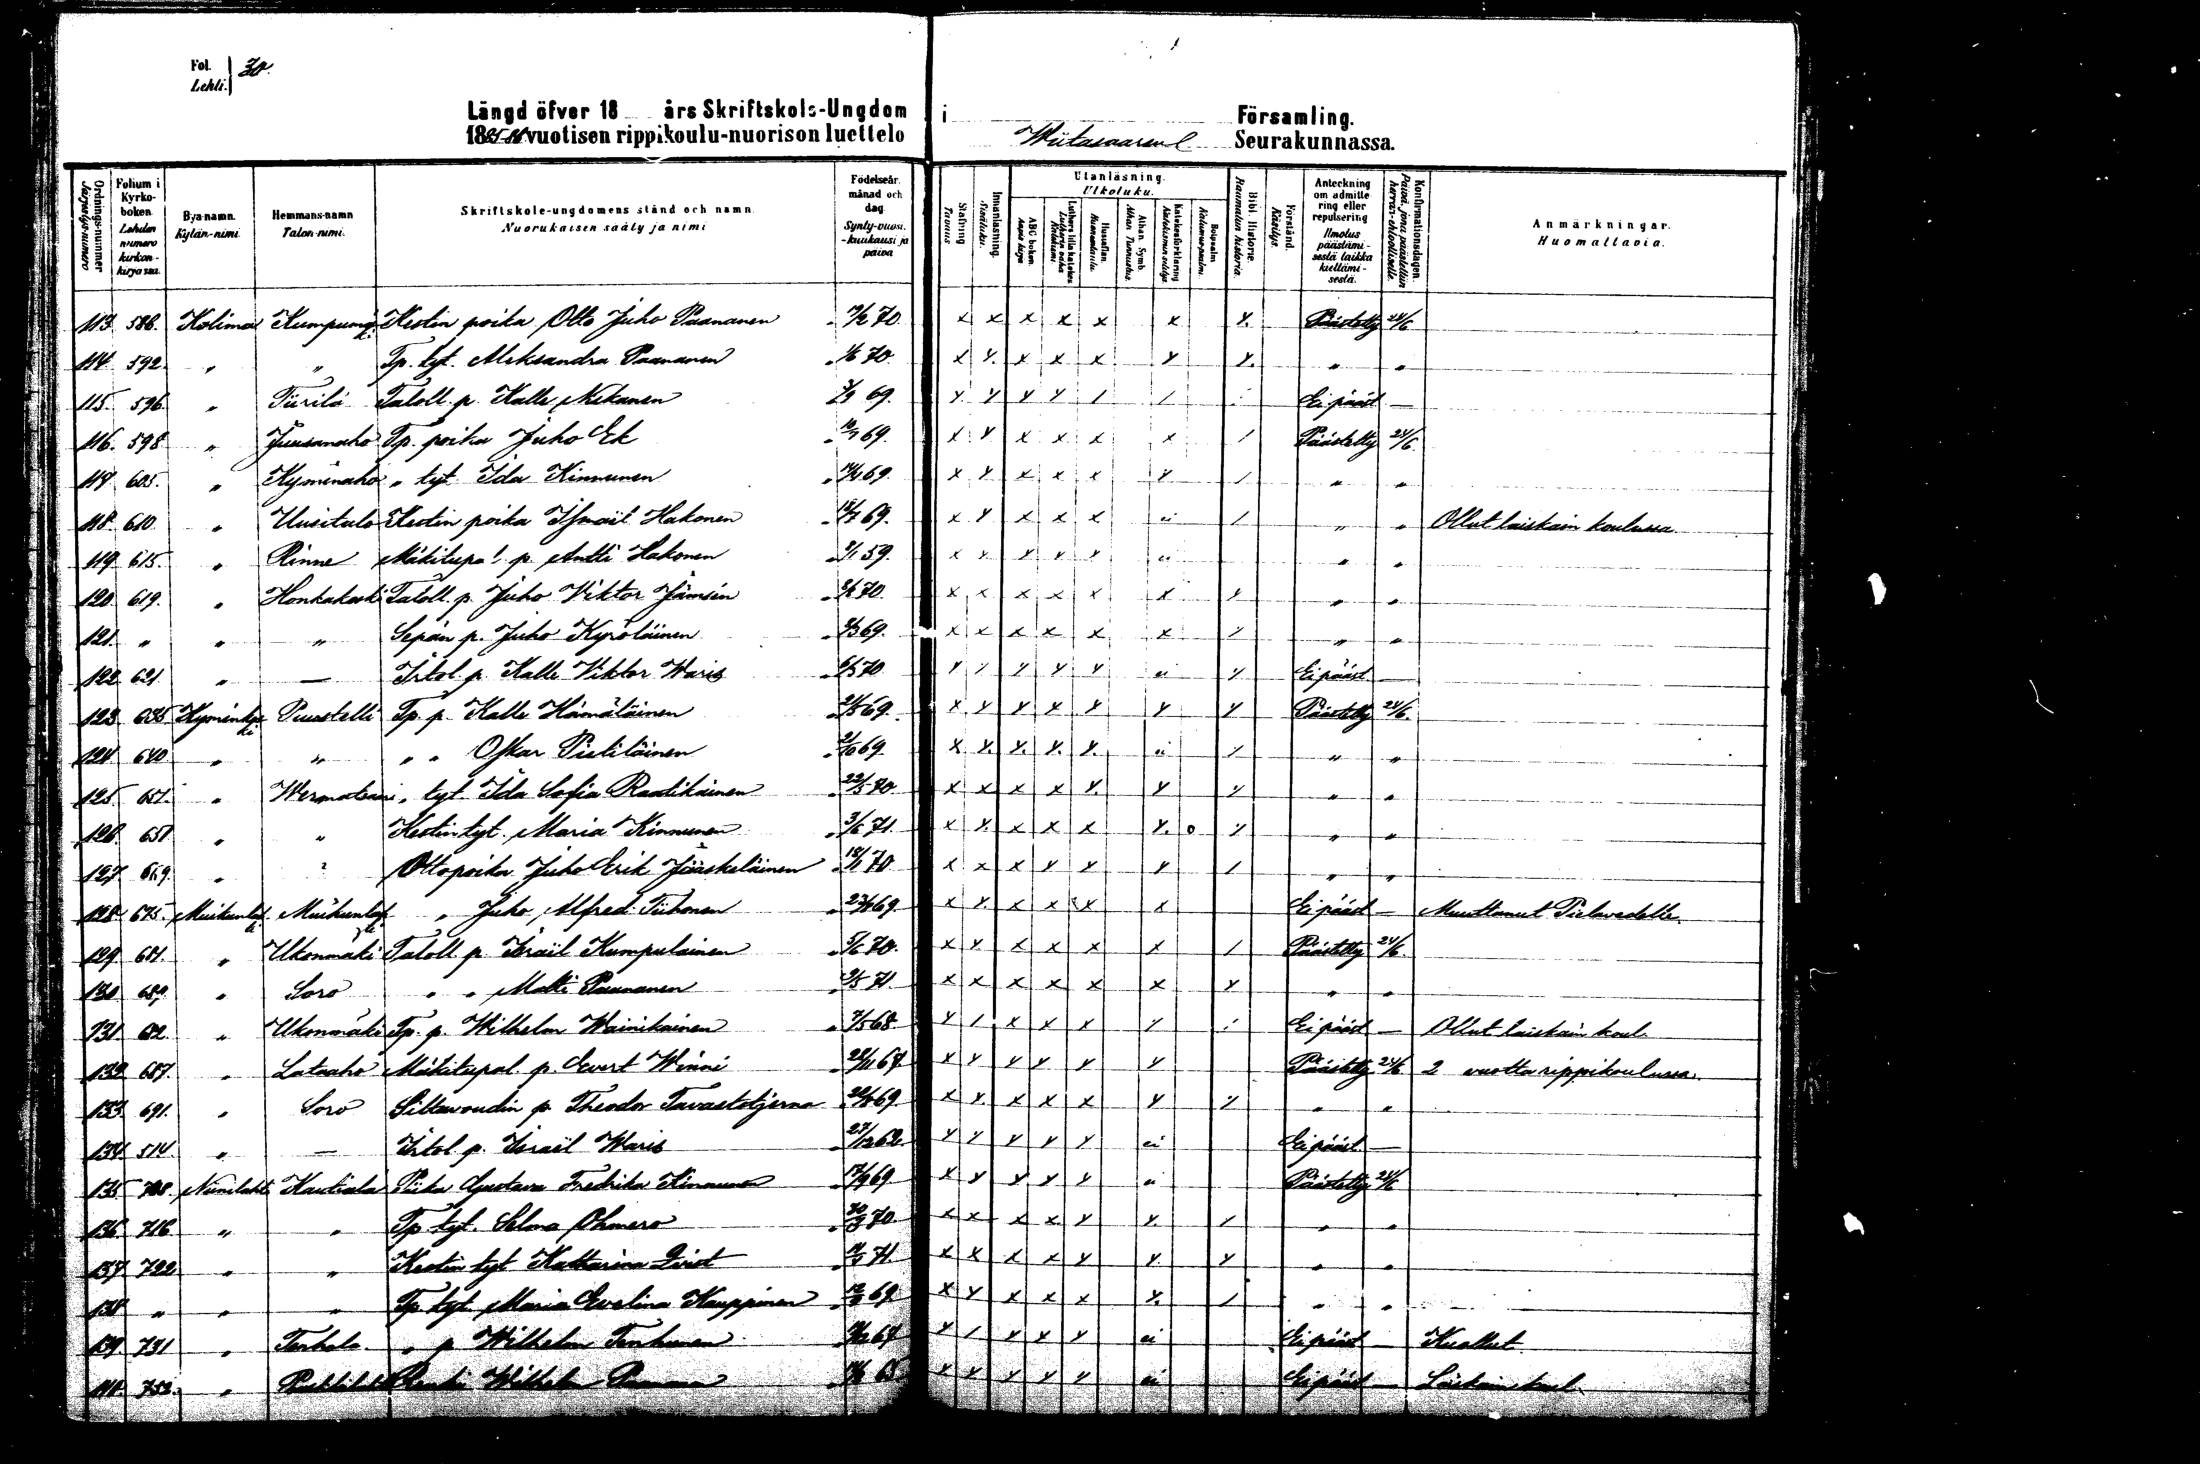 Fol. 30.
Lehti.
Längd öfver 18 års Skriftskols-Ungdom i Församling.
1885-86 vuotisen rippikoulu-nuorison luettelo Wiitasaaren Seurakunnassa.
Ordnings-nummer Järjestys-numero
Folium i Kyrko-boken. Lehden numero kirkon-kirjassa.
Bya-namn. Kylän-nimi.
Hemmans-namn Talon-nimi.
Skriftskole-ungdomens stånd och namn. Nuorukaisen sääty ja nimi
Födelseår. månad och dag Synty-vuosi. -kuukausi ja päivä
Stafning Tavuus
Innanläsning. Sisäluku.
Utanläsning. Ulkoluku.
ABC boken. Aapis kirja
Luthers lilla katekes
Hustaflan. Huoneentaulu.
Athan. Symb. Athan. Tunnustus.
Katekesförklaring
Botpsalm Katumus-psalmi.
Bibl. Historie. Raamatun historia.
Förstånd. Käsitys.
Anteckning om admittering eller repulsering Ilmotus päästämisestä taikka kieltämisestä.
Konfirmationsdagen.
Anmärkningar. Huomattavia.
113. 586. Kolima Kestin poika Otto Juho Paananen 70 x x x x x x Y. Päästetty 24/6
114 592 " " Tp. tyt. Aleksandra Paananen 70 x Y. x x x Y Y. " "
115. 596 " Tiirilä Taloll. p. Kalle Nekanen 69. Y. Y Y Y / / Ei pääst —
116. 598 " Juusanaho Tp. poika Juho Ek 69 x Y x x x x / Päästetty 24/6.
117 605. " Kyminaho " tyt. Ida Kinnunen 69. x Y x x x Y / " "
118. 610 " Uusitalo Kestin poika Ismail Hakonen 69. x Y x x x ei / " " Ollut laiskain koulussa
119 615. " Rinne Mäkitupal. p. Antti Hakonen 59. x Y. Y Y Y ei " "
120. 619. " Honkakoski Taloll. p. Juho Viktor Jämsén 70. x x x x x x Y " "
121. " " " Sepän p. Juho Kyröläinen 69. x x x x x x Y " "
122 621 " — Itsol. p. Kalle Viktor Waris 70 Y / Y Y Y ei Y Ei pääst —
123 Puustelli Tp. p. Kalle Hämäläinen 69. x Y Y x Y Y Y Päästetty 24/6.
124 640 " " " " Oskar Pietiläinen 69 x Y. Y. Y. Y. ei / " "
125. 651. " " tyt. Ida Sofia Raatikainen 22/5 70 x x x x Y. Y Y " "
126. 651 " " Kestin tyt. Maria Kinnunen 3/6 71. x Y. x x x Y. o Y " "
127. " Ottopoika Juho Erik Jääskeläinen 70 x x x Y Y Y / " "
128 675. " Juho Alfred Tiihonen 69. x Y. x x x x Ei pääst — Muuttanut Pielavedelle.
129 681. " Ukonmäki Taloll. p. Israil Kumpulainen 5/6 70. x Y. x x x x / Päästetty 24/6.
130 689 " Soro " " Matti Paananen 71. x x x x x x Y " "
131. 682. " Ukonmäki Tp. p. Wilhelm Wainikainen 68 Y / x x x Y Ei pääst — Ollut laiskain koul.
132 687. " Lataaho Mäkitupal. p. Evert Winni 67 Y Y Y Y Y Y Päästetty 24/6. 2 vuotta rippikoulussa.
133 691. " Soro Siltavoudin p. Theodor Tavaststjerna 69. x Y. x x x Y Y " "
134. 514. " — Itsol. p. Israël Waris 62. Y Y Y Y Y ei Ei pääst —
135 708 Niinilahti Kautiala Piika Gustava Fredrika Kinnunen 69 x Y Y Y Y ei Päästetty 24/6
136 716. " " Tp tyt. Selma Ohmero 70 x x x x Y Y. / " "
137 722 " " Kestin tyt Katharina Qvist 71 x x x x Y Y. Y " "
138 " " " Tp. tyt. Maria Evelina Kauppinen 69. x Y x x x Y. / " "
139 731 " Tenhola. " p Wilhelm Tenhunen 67 Y / Y Y Y ei Ei pääst — Kuollut
140 753. " Wilhelm 65 Y Y Y Y Y ei Ei pääst — Laiskain koul.